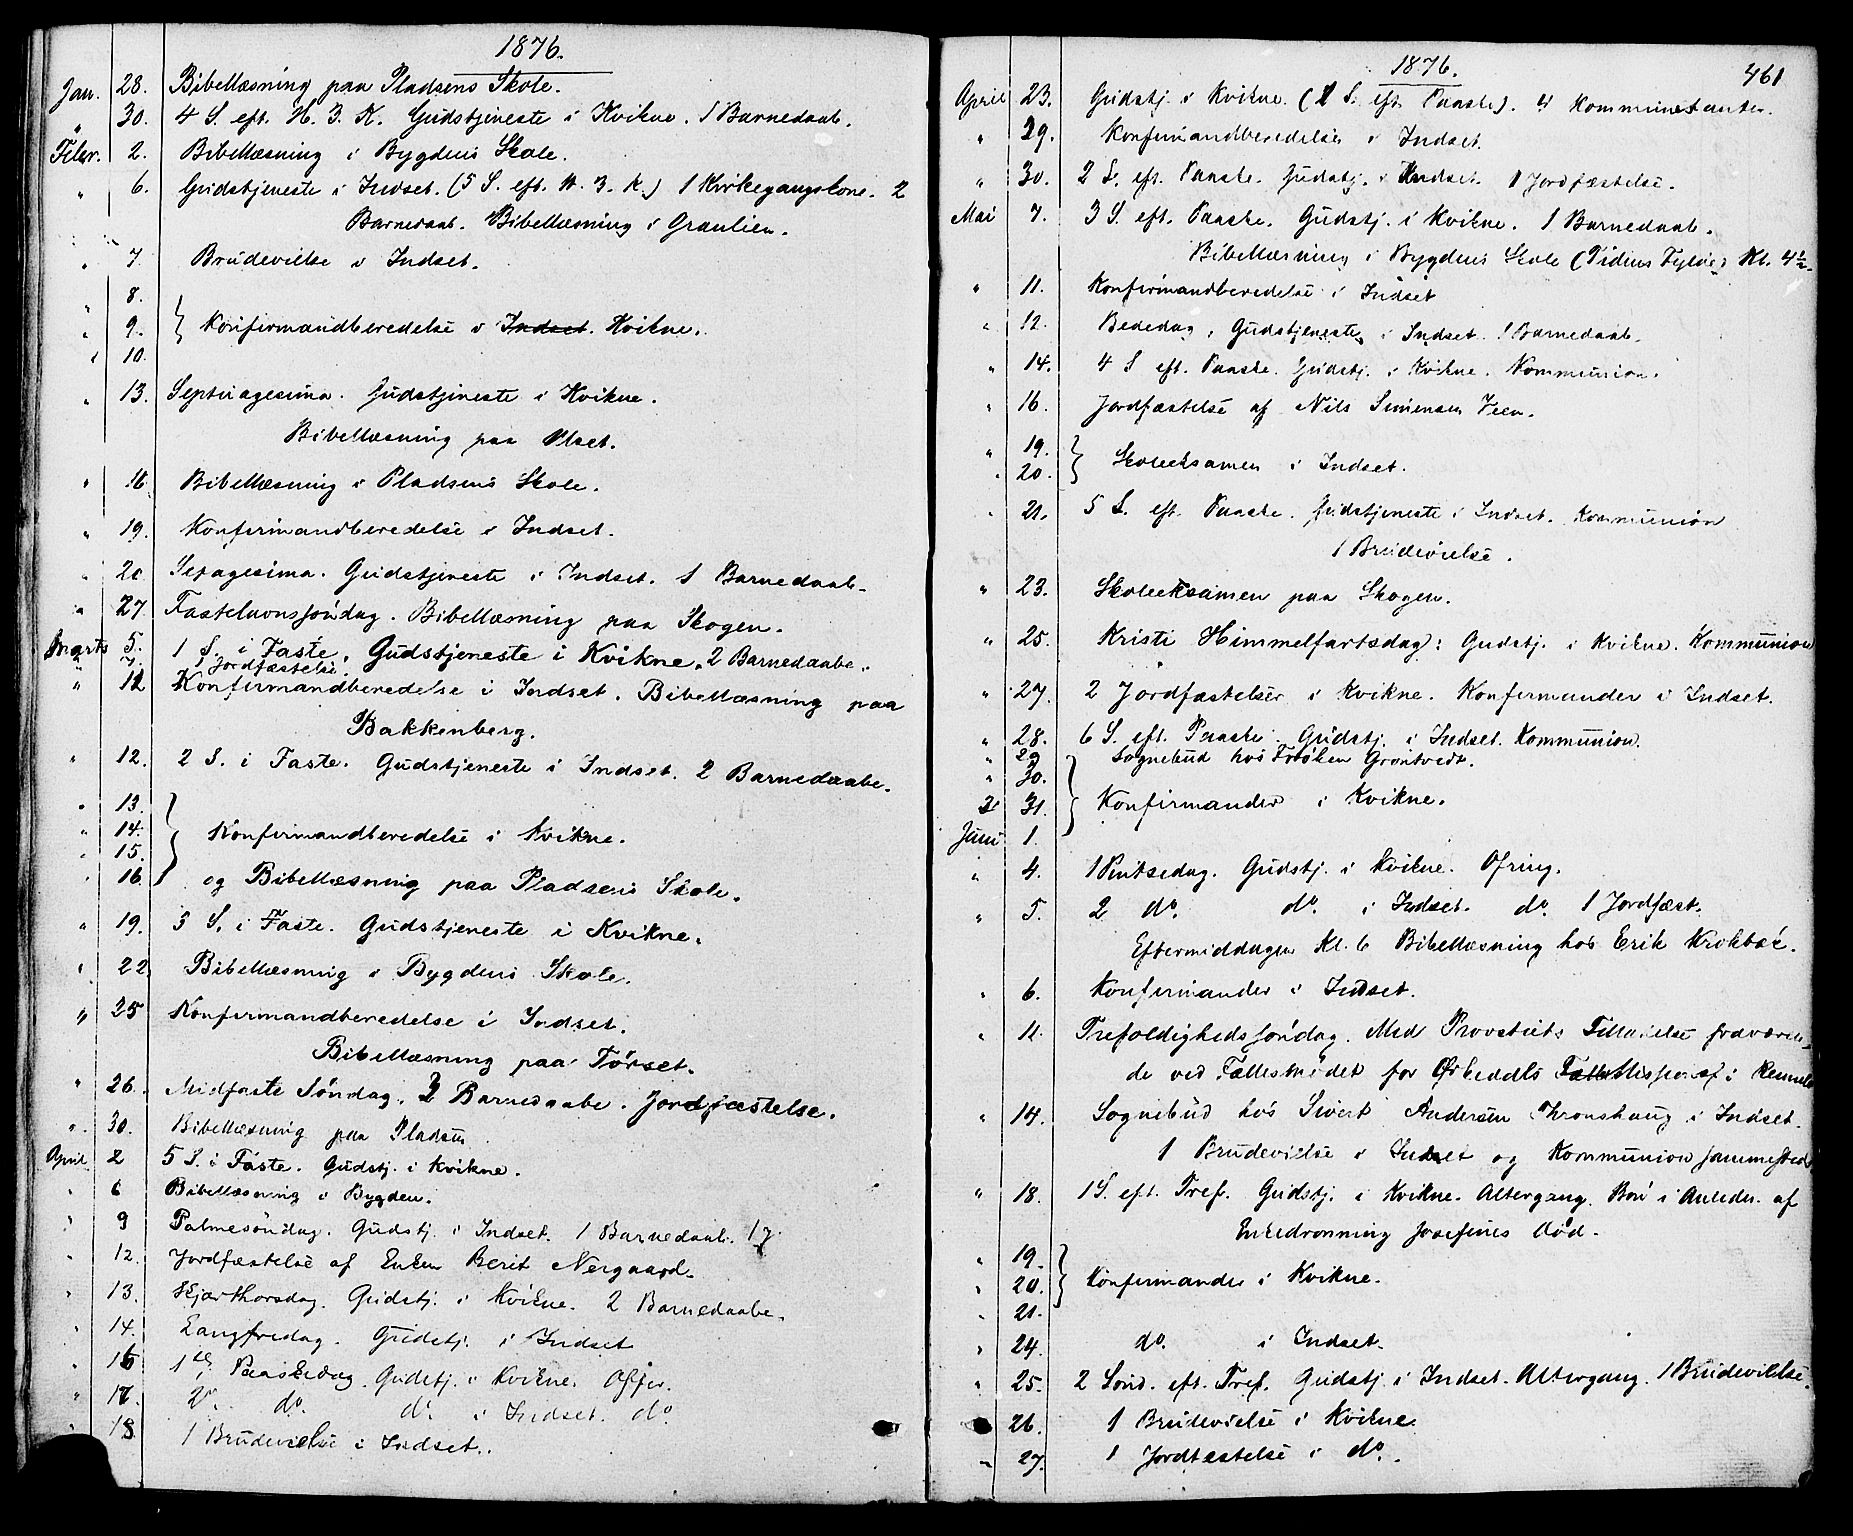 1876.
Jan. 28. Bibellæsning paa Pladsens Skole.
" 30. 4 S. eft. H. 3. K. Gudstjeneste i Kvikne. 1 Barnedaab.
Febr. 2. Bibellæsning i Bygdens Skole.
" 6. Gudstjeneste i Indset. (5 S. eft. H. 3. K.) 1 Kirkegangskone. 2
Barnedaab. Bibellæsning i Graulien.
" 7 Brudevielse i Indset.
" 8.
" 9. } Konfirmandberedelse i Indset. Kvikne.
" 10.
" 13. Septuagesima. Gudstjeneste i Kvikne.
Bibellæsning paa Ulset.
" 16. Bibellæsning i Pladsens Skole.
" 19. Konfirmandberedelse i Indset.
" 20 Sexagesima. Gudstjeneste i Indset. 1 Barnedaab.
" 27. Fastelavnssøndag. Bibellæsning paa Skogen.
Marts 5. 1 S. i Faste. Gudstjeneste i Kvikne. 2 Barnedaabe.
" 7. 1 Jordfæstelse.
" 11 Konfirmandberedelse i Indset. Bibellæsning paa
Bakkenberg.
" 12. 2 S. i Faste. Gudstjeneste i Indset. 2 Barnedaabe.
" 13.
" 14. } Konfirmandberedelse i Kvikne.
" 15.
" 16 og Bibellæsning paa Pladsens Skole.
" 19. 3 S. i Faste. Gudstjeneste i Kvikne.
" 22 Bibellæsning i Bygdens Skole.
" 25 Konfirmandberedelse i Indset.
Bibellæsning paa Tørset.
" 26. Midfaste Søndag. 2 Barnedaabe. Jordfæstelse.
" 30. Bibellæsning paa Pladsen
April 2 5 S. i Faste. Gudstj. i Kvikne.
" 6 Bibellæsning i Bygden.
" 9 Palmesøndag. Gudstj. i Indset. 1 Barnedaab.
" 12. Jordfæstelse af Enken Berit Nergaard.
" 13. Skjærthorsdag. Gudstj. i Kvikne. 2 Barnedaabe.
" 14. Langfredag. Gudstj. i Indset
" 16 1ste Paaskedag. Gudstj. i Kvikne. Offer.
" 17. 2den do. do. i Indset. do.
" 18 1 Brudevielse i Indset.
1876. 461
April 23. Gudstj. i Kvikne. (1 S. eft. Paaske). 4 Kommunikanter.
" 29. Konfirmandberedelse i Indset.
" 30. 2 S. eft. Paaske. Gudstj. i Indset. 1 Jordfæstelse.
Mai 7. 3 S. eft. Paaske. Gudstj. i Kvikne. 1 Barnedaab.
Bibellæsning i Bygdens Skole (Tidens Fylde) Kl. 4½.
" 11. Konfirmandberedelse i Indset
" 12. Bededag. Gudstjeneste i Indset. 1 Barnedaab.
" 14. 4 S eft. Paaske. Gudstj. i Kvikne. Kommunion.
" 16. Jordfæstelse af Nils Simensen Veen.
" 19.
" 20. } Skoleeksamen i Indset.
" 21. 5 S. eft. Paaske. Gudstjeneste i Indset. Kommunion
1 Brudevielse.
" 23. Skoleeksamen paa Skogen.
" 25. Kristi Himmelfartsdag: Gudstj. i Kvikne. Kommunion
" 27. 2 Jordfæstelser i Kvikne. Konfirmander i Indset.
" 28. 6 S. eft. Paaske. Gudstj. i Indset. Kommunion.
" 29 Sognebud hos Frøken Grøntvedt.
" 30.
31. } Konfirmander i Kvikne.
Juni 1.
" 4. 1 Pintsedag. Gudstj. i Kvikne. Ofring.
" 5. 2 do. do. i Indset. do. 1 Jordfæst.
Eftermiddagen Kl. 6 Bibellæsning hos Erik Krokbæk.
" 6. Konfirmander i Indset.
" 11. Trefoldighedssøndag. Med Provstiets Tilladelse fraværen-
de ved Fællesmødet for Ørkedals i Rennebu
" 14. Sognebud hos Sivert Andersen Thronshaug i Indset.
1 Brudevielse i Indset og Kommunion sammesteds
" 18. 1 S. eft. Tref. Gudstj. i Kvikne. Altergang. Bøn i Anledn. af
Enkedronning Josefines Død.
" 19.
" 20. } Konfirmander i Kvikne.
" 21.
" 24. do. i Indset.
" 25. 2 Sønd. eft. Tref. Gudstj. i Indset. Altergang. 1 Brudevielse.
" 26. 1 Brudevielse i Kvikne
" 27. 1 Jordfæstelse i do.